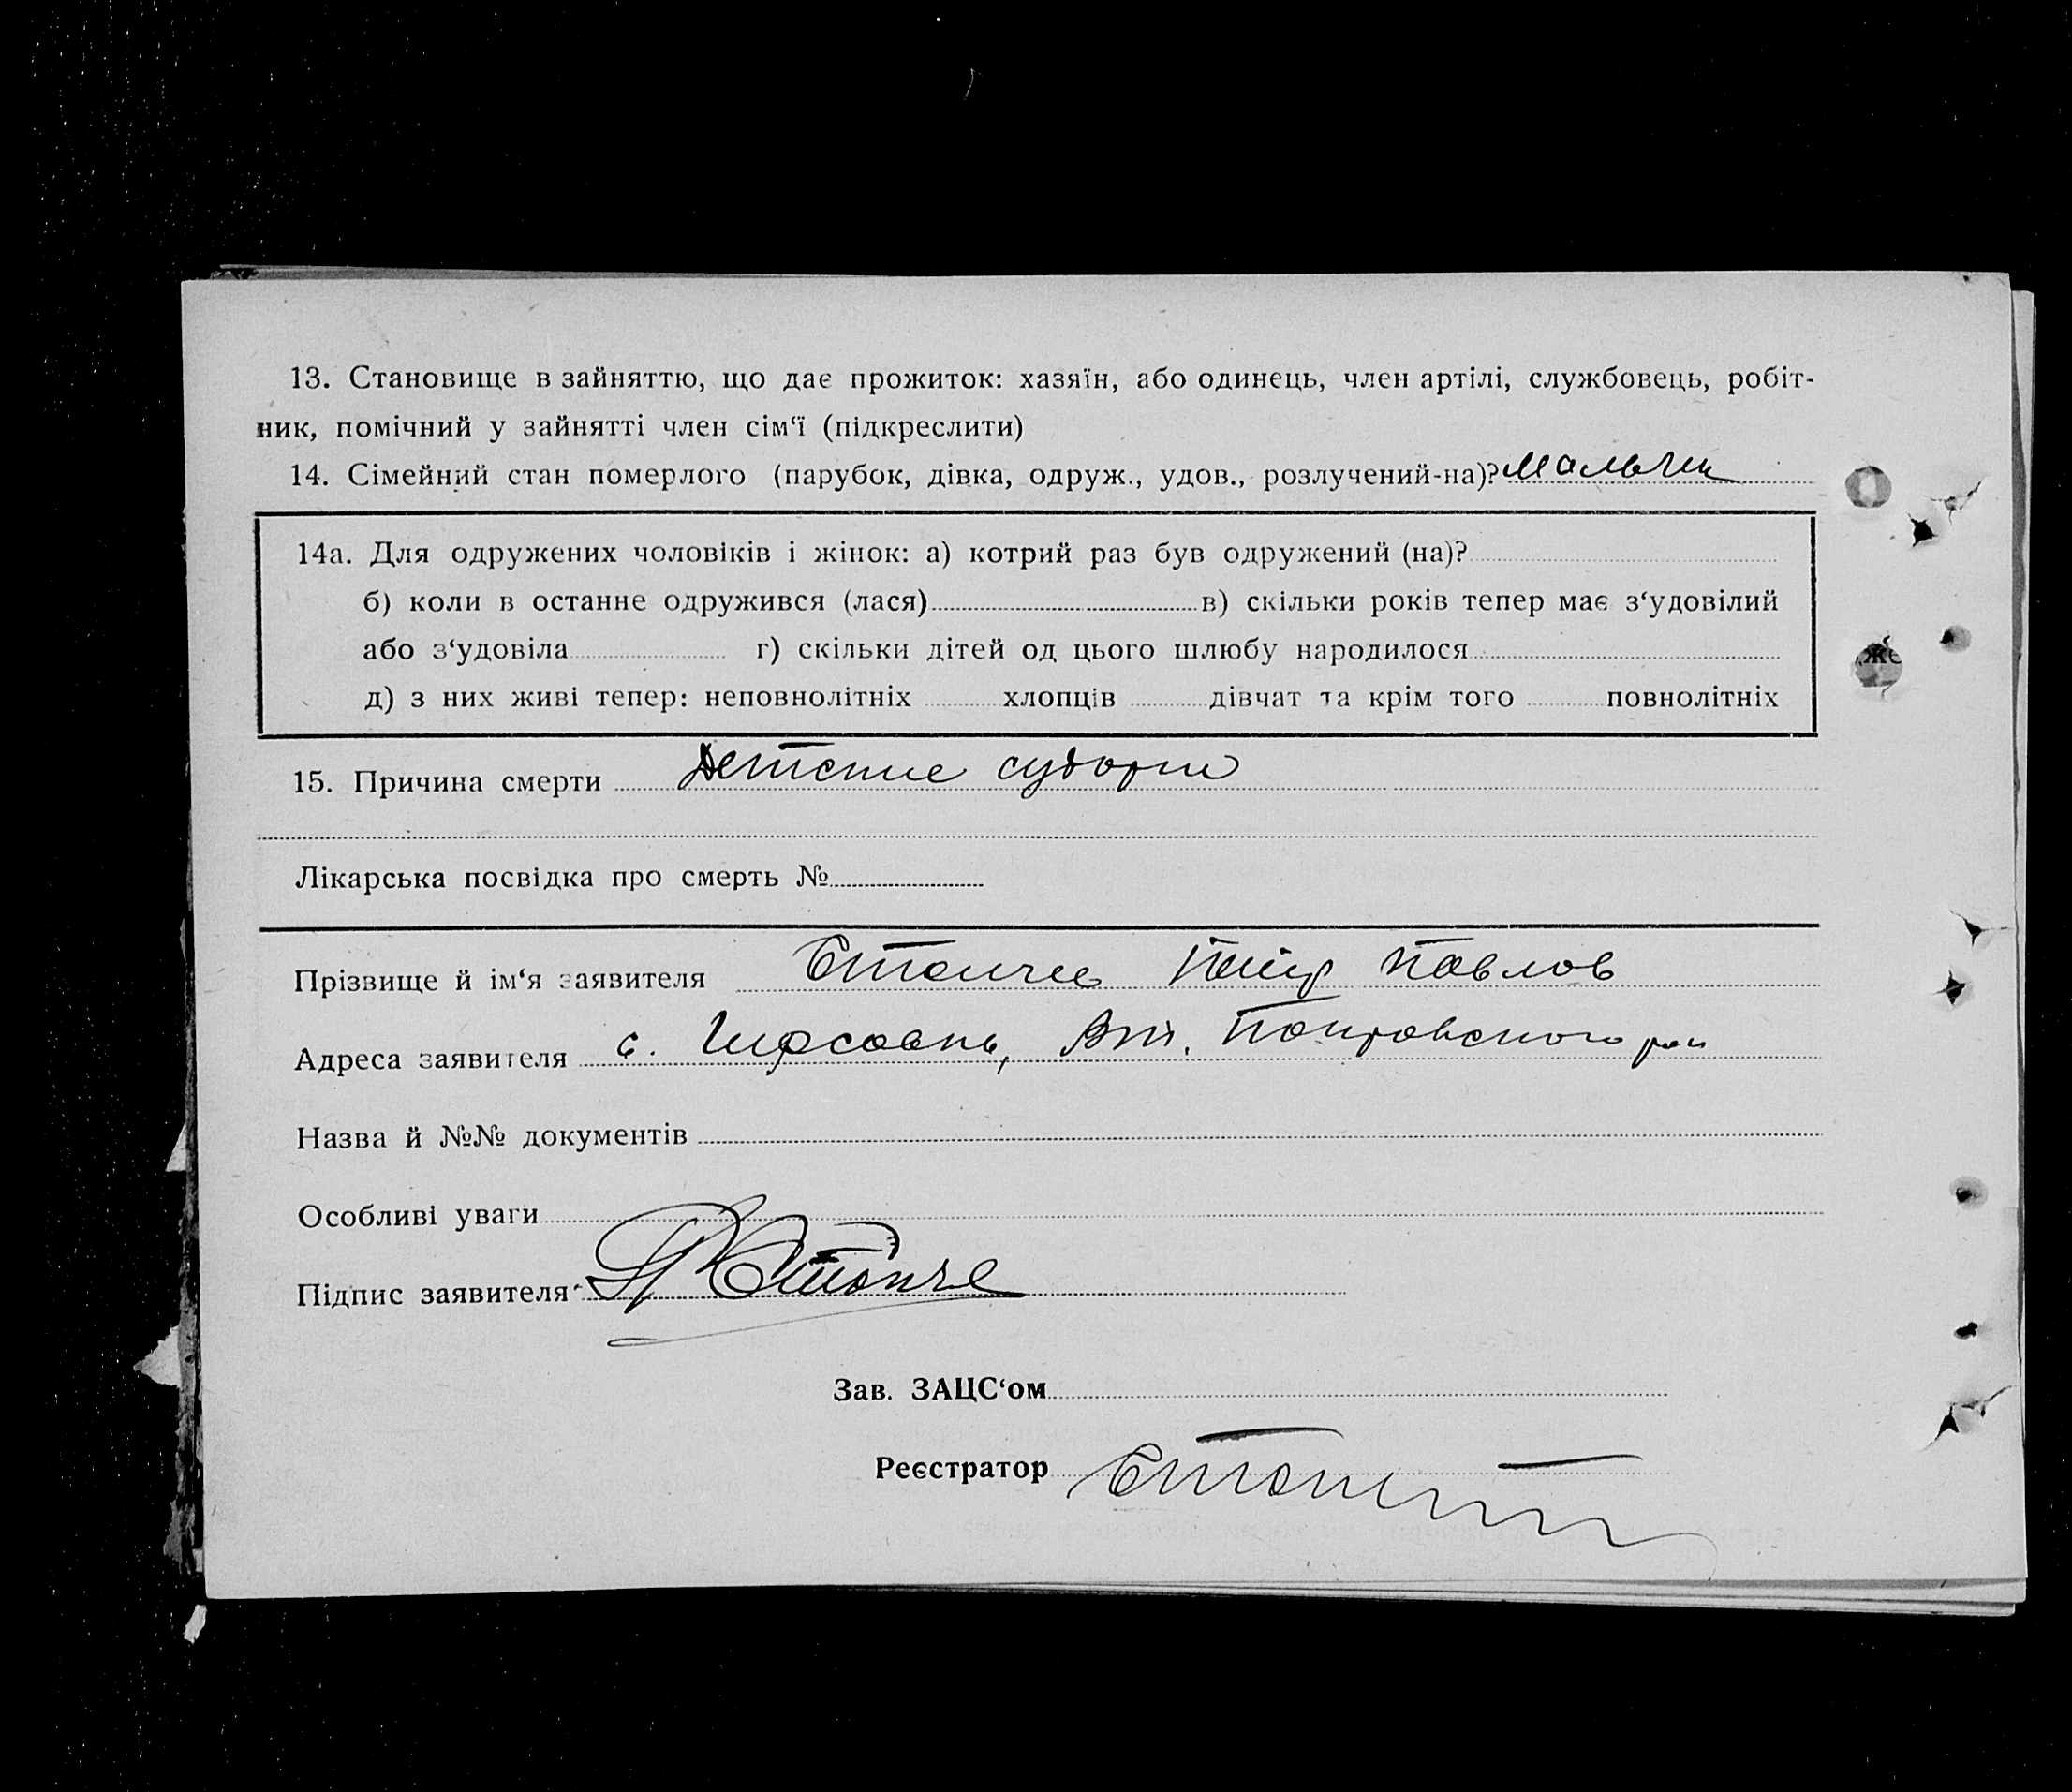 13. Становище в зайняттю, що дає прожиток: хазяїн, або одинець, член артілі, службовець, робіт-
ник, помічний у зайнятті член сім‘ї (підкреслити)
14. Сімейний стан померлого (парубок, дівка, одруж., удов., розлучений-на)? мальчик
14а. Для одружених чоловіків і жінок: а) котрий раз був одружений (на)?
б) коли в останне одружився (лася) в) скільки років тепер має з‘удовілий
або з‘удовіла г) скільки дітей од цього шлюбу народилося
д) з них живі тепер: неповнолітніх хлопців дівчат та крім того повнолітніх
15. Причина смерти Детские судорги
Лікарська посвідка про смерть №
Прізвище й ім‘я заявителя Павлов
Адреса заявителя с.
Назва й №№ документів
Особливі уваги
Підпис заявителя
Зав. ЗАЦС‘ом
Реєстратор
же